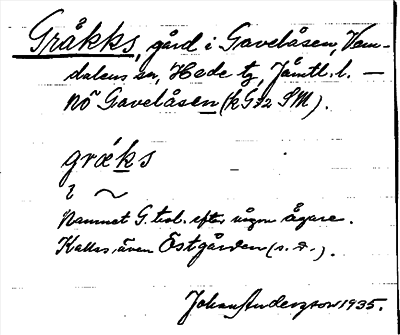 Gråkks, gård i Gavelåsen, Vem-
dalens sn, Hede tg, Jämtl. l. —
nö Gavelåsen (k G:2 SM).
gråks
i ~
Namnet G. trol. efter någon ägare.
Kallas även Östgården (s. d.).
Johan Anderzson 1935.